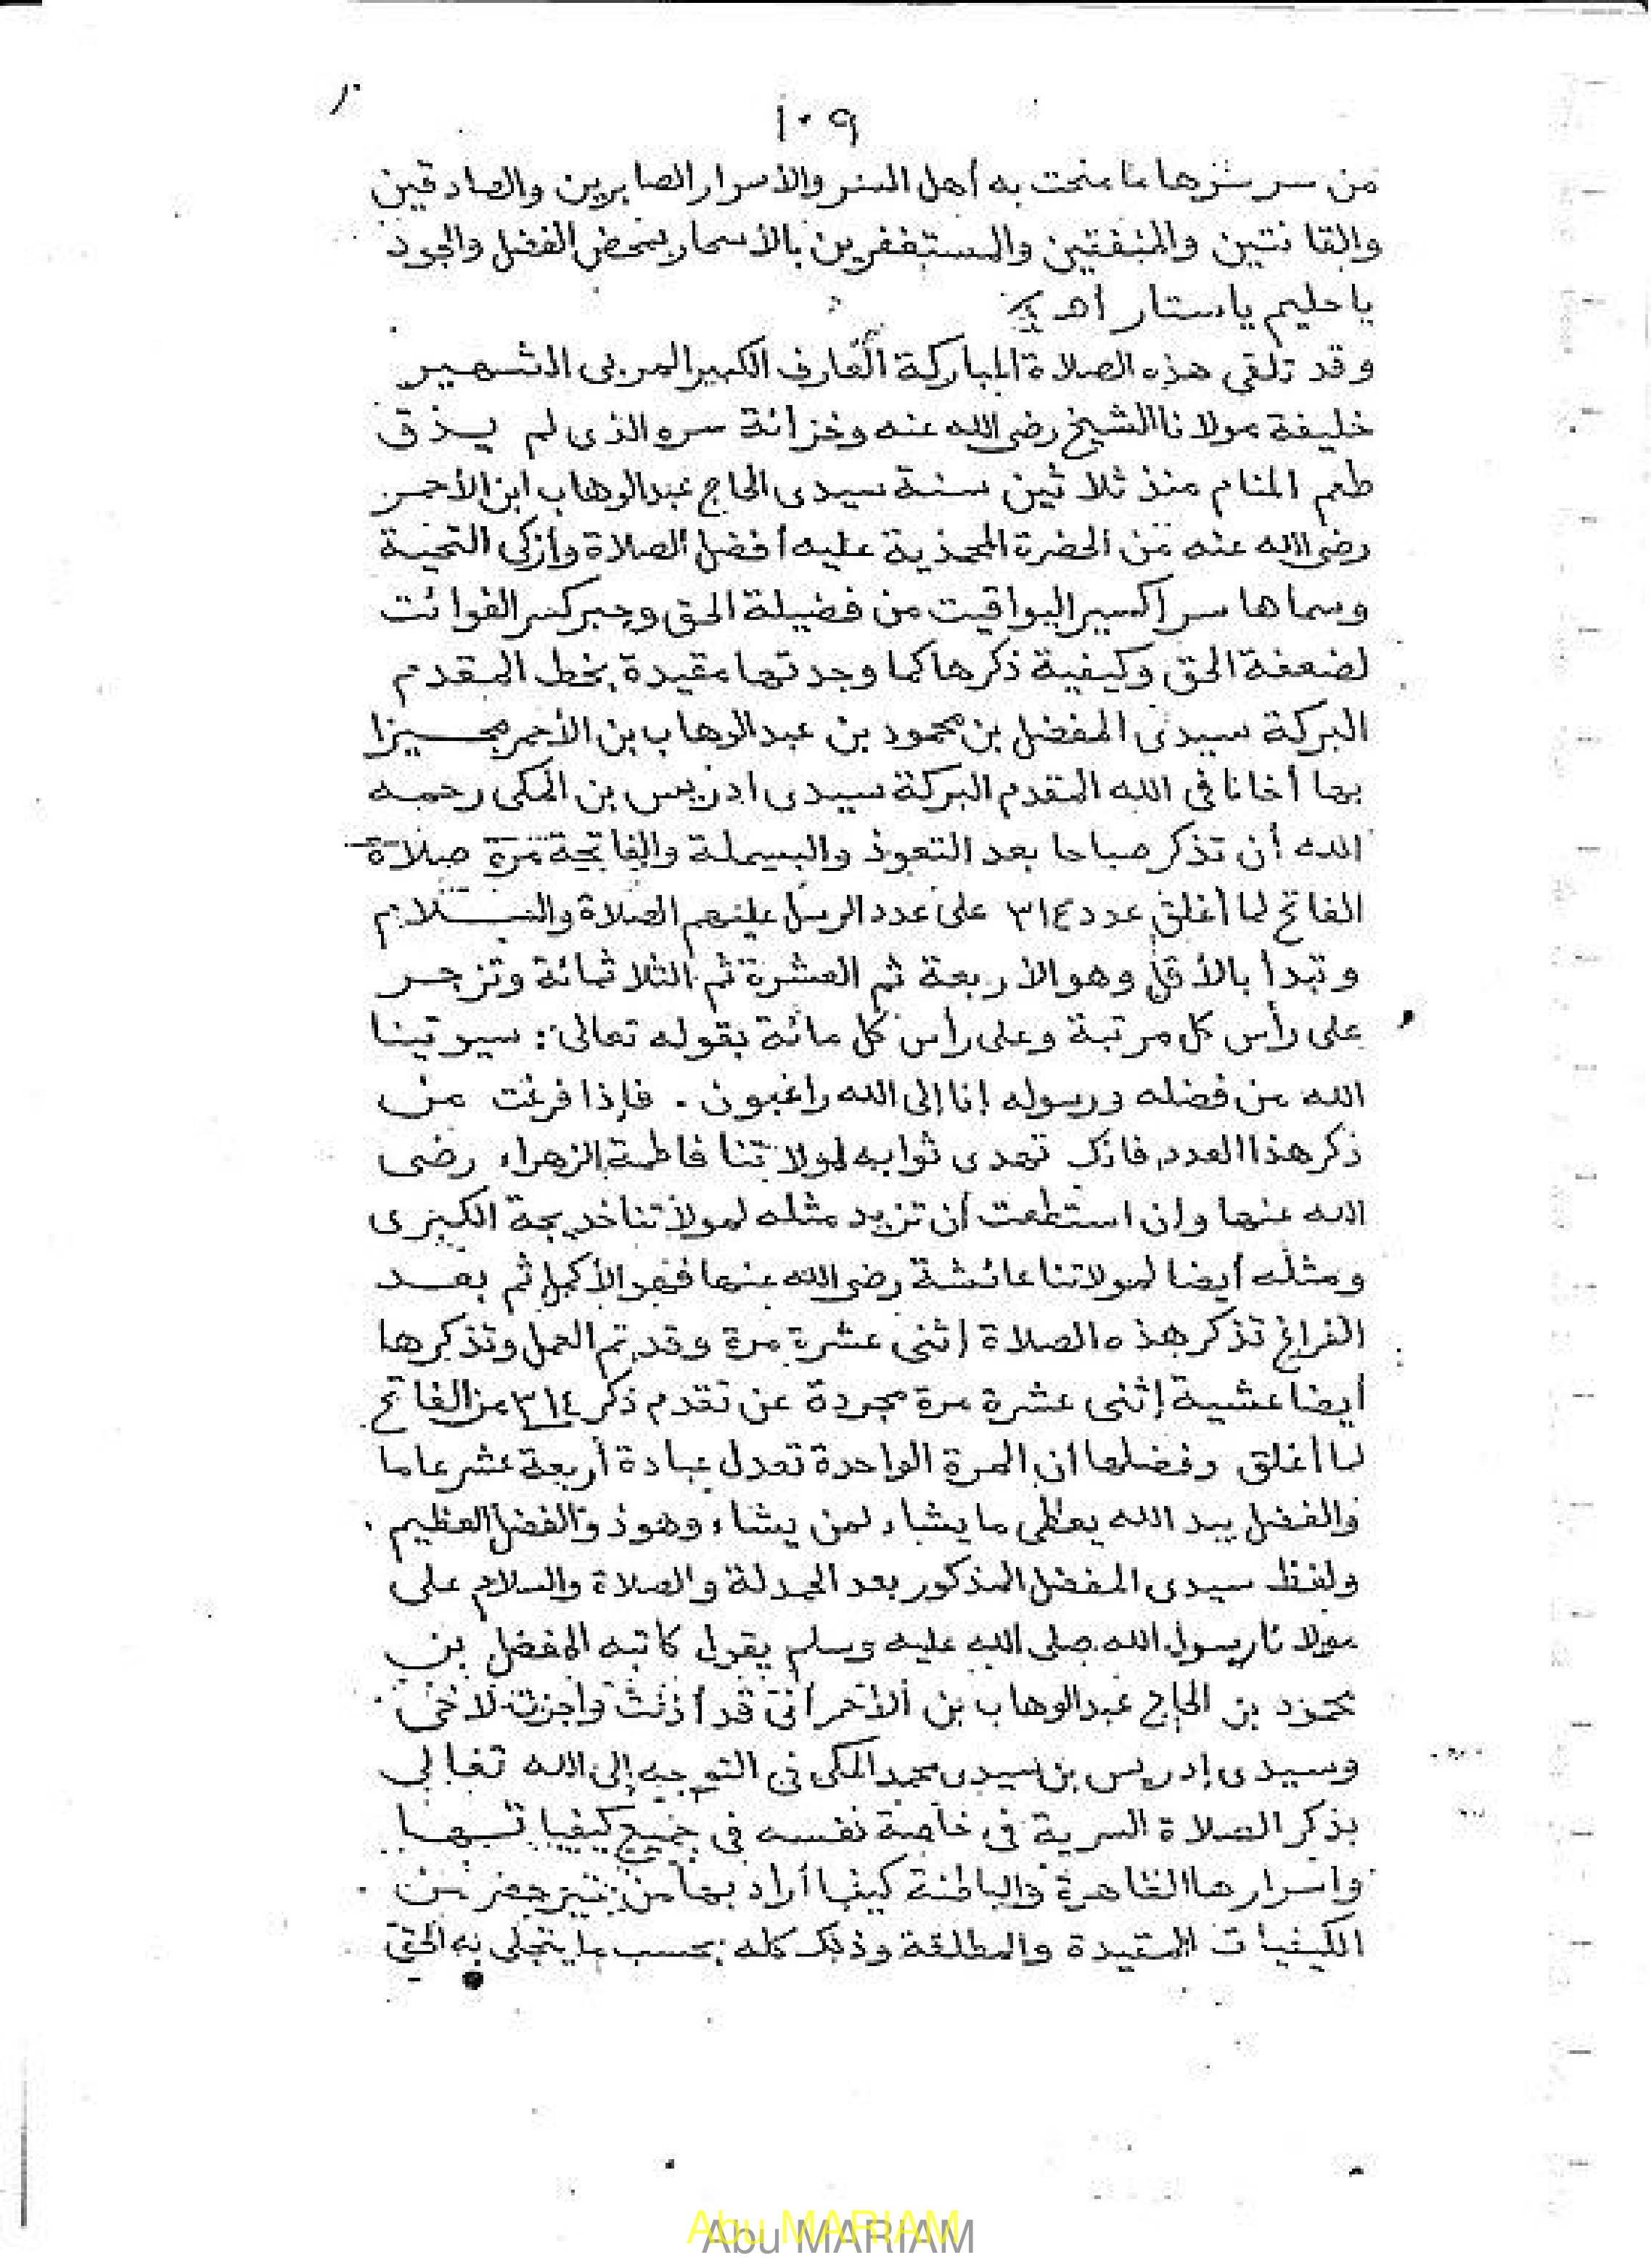 ١٠٩
من سر سرها ما منحت به أهل السر والأسرار الصابرين والصادقين
والقانتين والمنفقين والمستغفرين بالأسحار بمحض الفضل والجود
يا حليم يا ستار أهـ
وقد تلقى هذه الصلاة المباركة العارف الكبير المربى الشهير
خليفة مولانا الشيخ رضى الله عنه وخزانة سره الذى لم يذق
طعم المنام منذ ثلاثين سنة سيدى الحاج عبد الوهاب ابن الأحمر
رضى الله عنه من الحضرة المحمدية عليه أفضل الصلاة وأزكى التحية
وسماها سر إكسير اليواقيت من فضيلة الحق وجبر كسر الفوائت
لضعفة الحق وكيفية ذكرها كما وجدتها مقيدة بخط المقدم
البركة سيدى المفضل بن محمود بن عبد الوهاب بن الأحمر مجيزا
بها أخانا فى الله المقدم البركة سيدى ادريس بن المكى رحمه
الله أن تذكر صباحا بعد التعوذ والبسملة والفاتحة مرة صلاة
الفاتح لما أغلق عدد ٣١٤ على عدد الرسل عليهم الصلاة والسلام
وتبدأ بالأقل وهو الأربعة ثم العشرة ثم الثلاثمائة وتزجر
على رأس كل مرتبة وعلى رأس كل مائة بقوله تعالى: سيوتينا
الله من فضله ورسوله إنا إلى الله راغبون. فإذا فرغت من
ذكر هذا العدد فإنك تهدى ثوابه لمولاتنا فاطمة الزهراء رضى
الله عنها وإن استطعت أن تزيد مثله لمولاتنا خديجة الكبرى
ومثله أيضا لمولاتنا عائشة رضى الله عنها فهو الأكمل ثم بعد
الفراغ تذكر هذه الصلاة إثنى عشرة مرة وقد تم العمل وتذكرها
أيضا عشية إثنى عشرة مرة مجردة عن تقدم ذكر ٣١٤ من الفاتح
لما أغلق وفضلها أن المرة الواحدة تعدل عبادة أربعة عشر عاما
والفضل بيد الله يعطى ما يشاء لمن يشاء وهو ذو الفضل العظيم.
ولفظ سيدى المفضل المذكور بعد الحمدلة والصلاة والسلام على
مولانا رسول الله صلى الله عليه وسلم يقول كاتبه المفضل بن
محمود بن الحاج عبد الوهاب بن الأحمر أنى قد أذنت وأجزت لأخى
وسيدى إدريس بن سيدى محمد المكى فى التوجه إلى الله تعالى
بذكر الصلاة السرية فى خاصة نفسه فى جميع كيفياتها
وأسرارها الظاهرة والباطنة كيفما أراد بها من غير حصر من
الكيفيات المقيدة والمطلقة وذلك كله بحسب ما يتجلى به الحق
Abu MARIAM